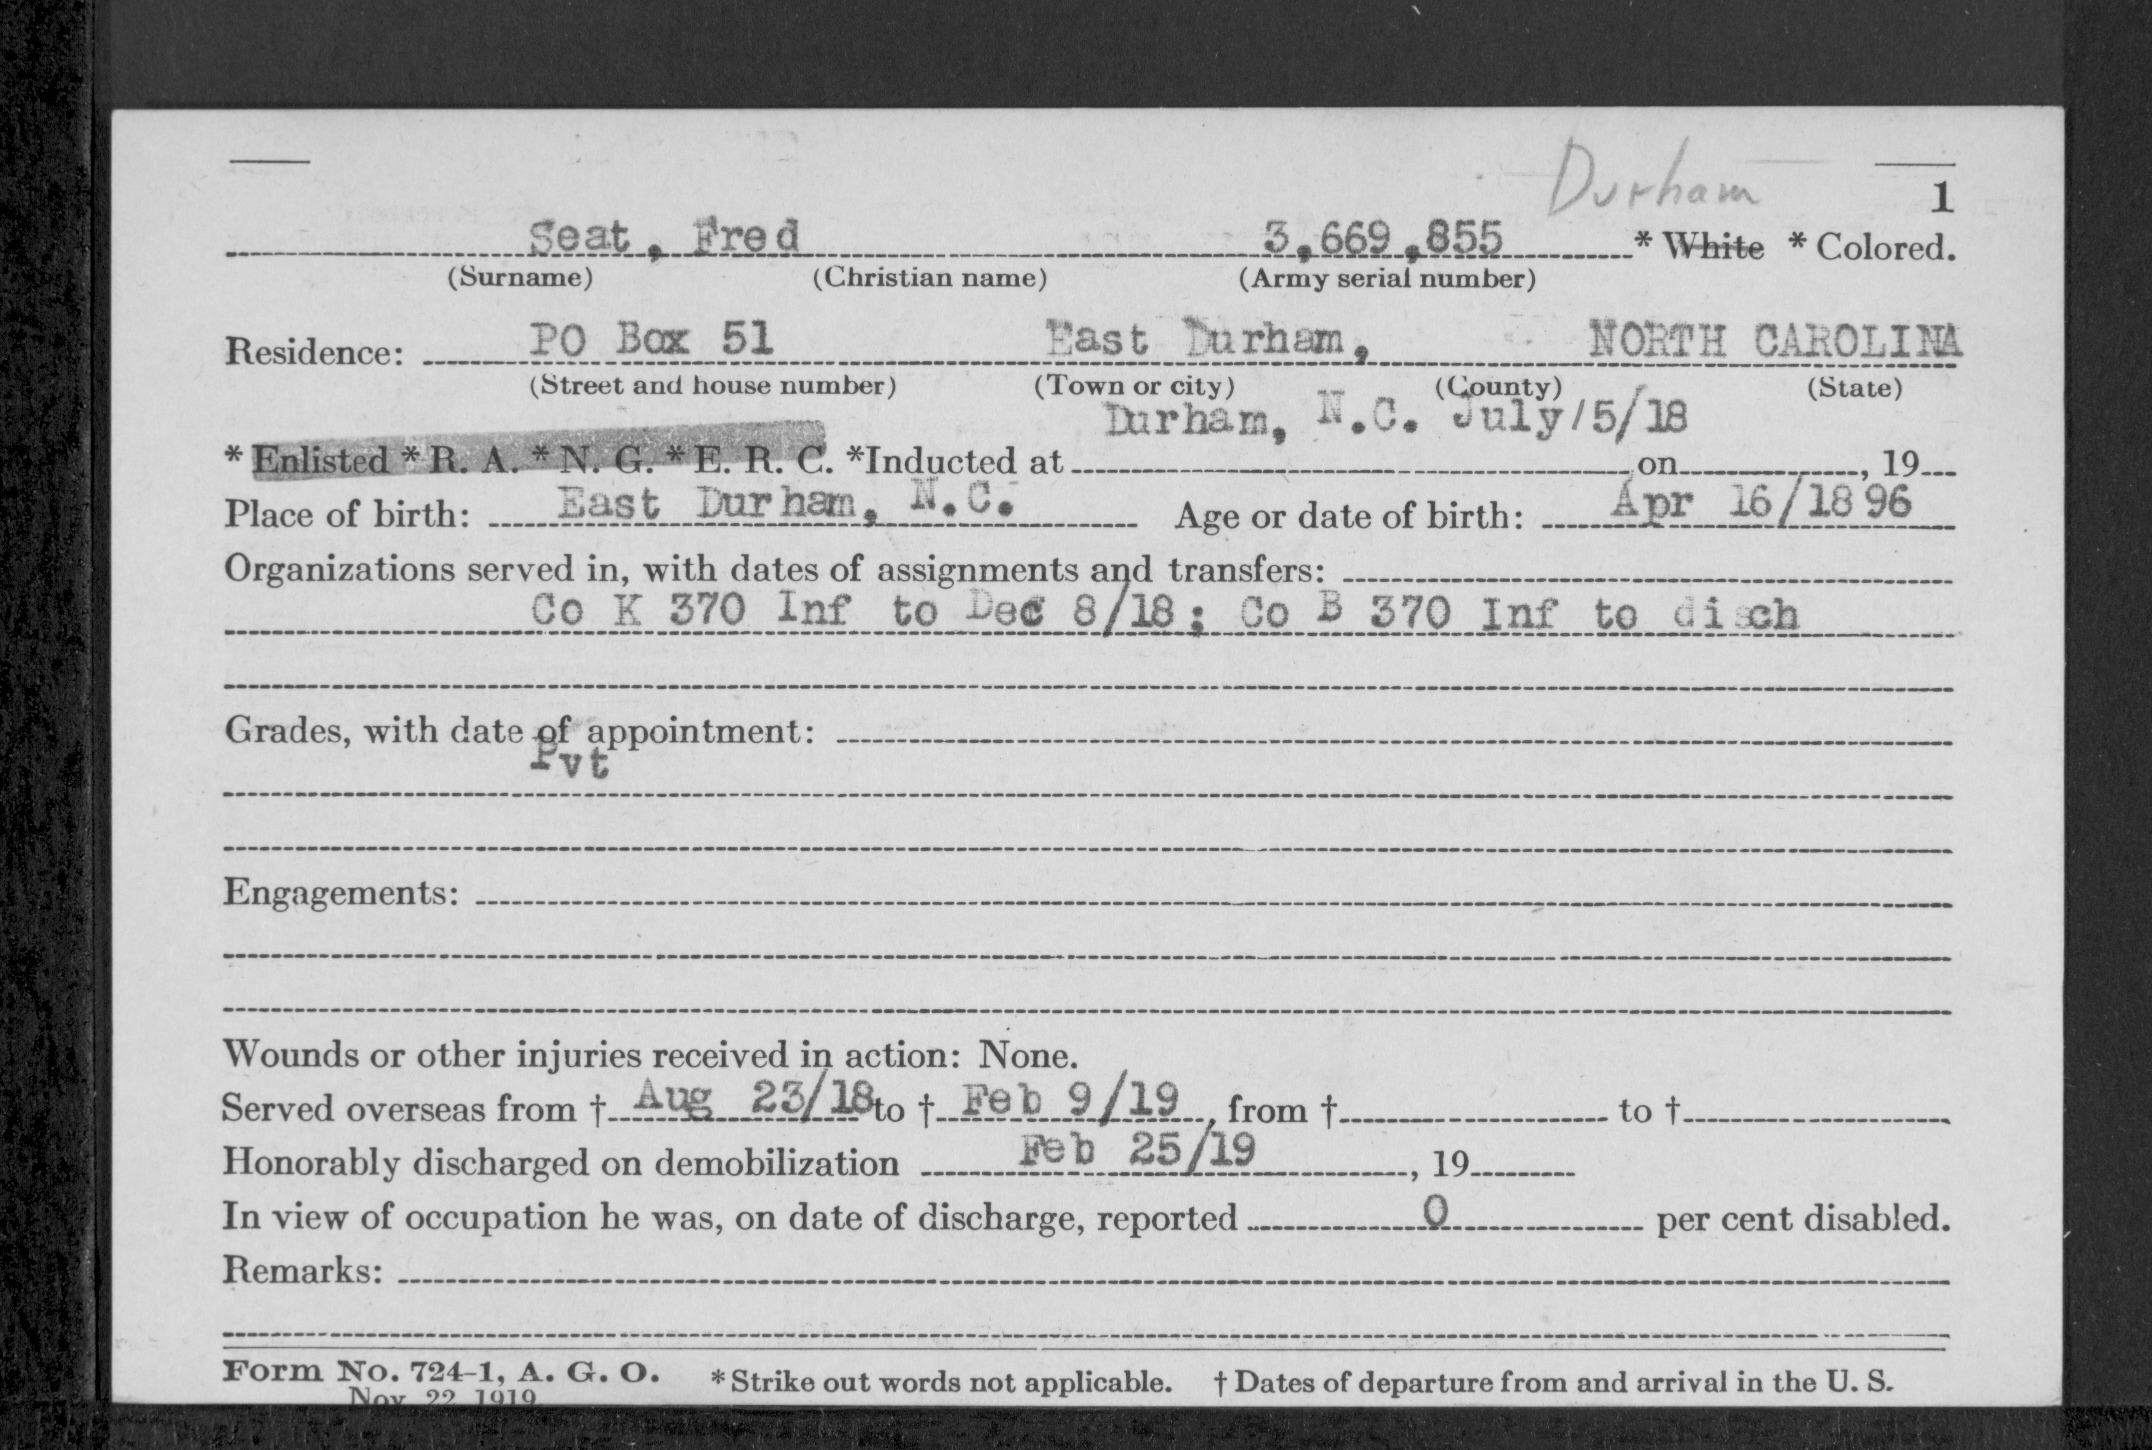 Durham
1
Seat, Fred 3,669,855 * White * Colored.
(Surname) (Christian name) (Army serial number)
Residence: PO Box 51 East Durham, NORTH CAROLINA
(Street and house number) (Town or city) (County) (State)
Durham, N.C. July/5/18
* Enlisted * R. A. * N. G. * E. R. C. *Inducted at on , 19
Place of birth: East Durham, N.C. Age or date of birth: Apr 16/1896
Organizations served in, with dates of assignments and transfers:
Co K 370 Inf to Dec 8/18; Co B 370 Inf to disch
Grades, with date of appointment:
Pvt
Engagements:
Wounds or other injuries received in action: None.
Served overseas from † Aug 23/18 to † Feb 9/19, from † to †
Honorably discharged on demobilization Feb 25/19, 19
In view of occupation he was, on date of discharge, reported 0 per cent disabled.
Remarks:
Form No. 724-1, A. G. O. * Strike out words not applicable. † Dates of departure from and arrival in the U. S.
Nov. 22, 1919